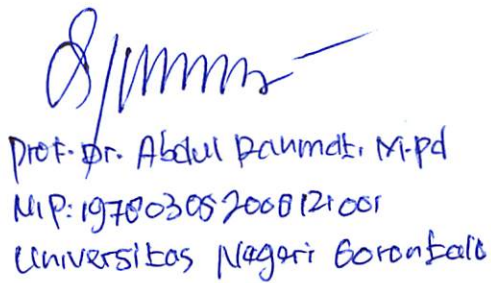 Prof. Dr. Abdul Rahmat, M.Pd
NIP: 197803052008121001
Universitas Negeri Gorontalo